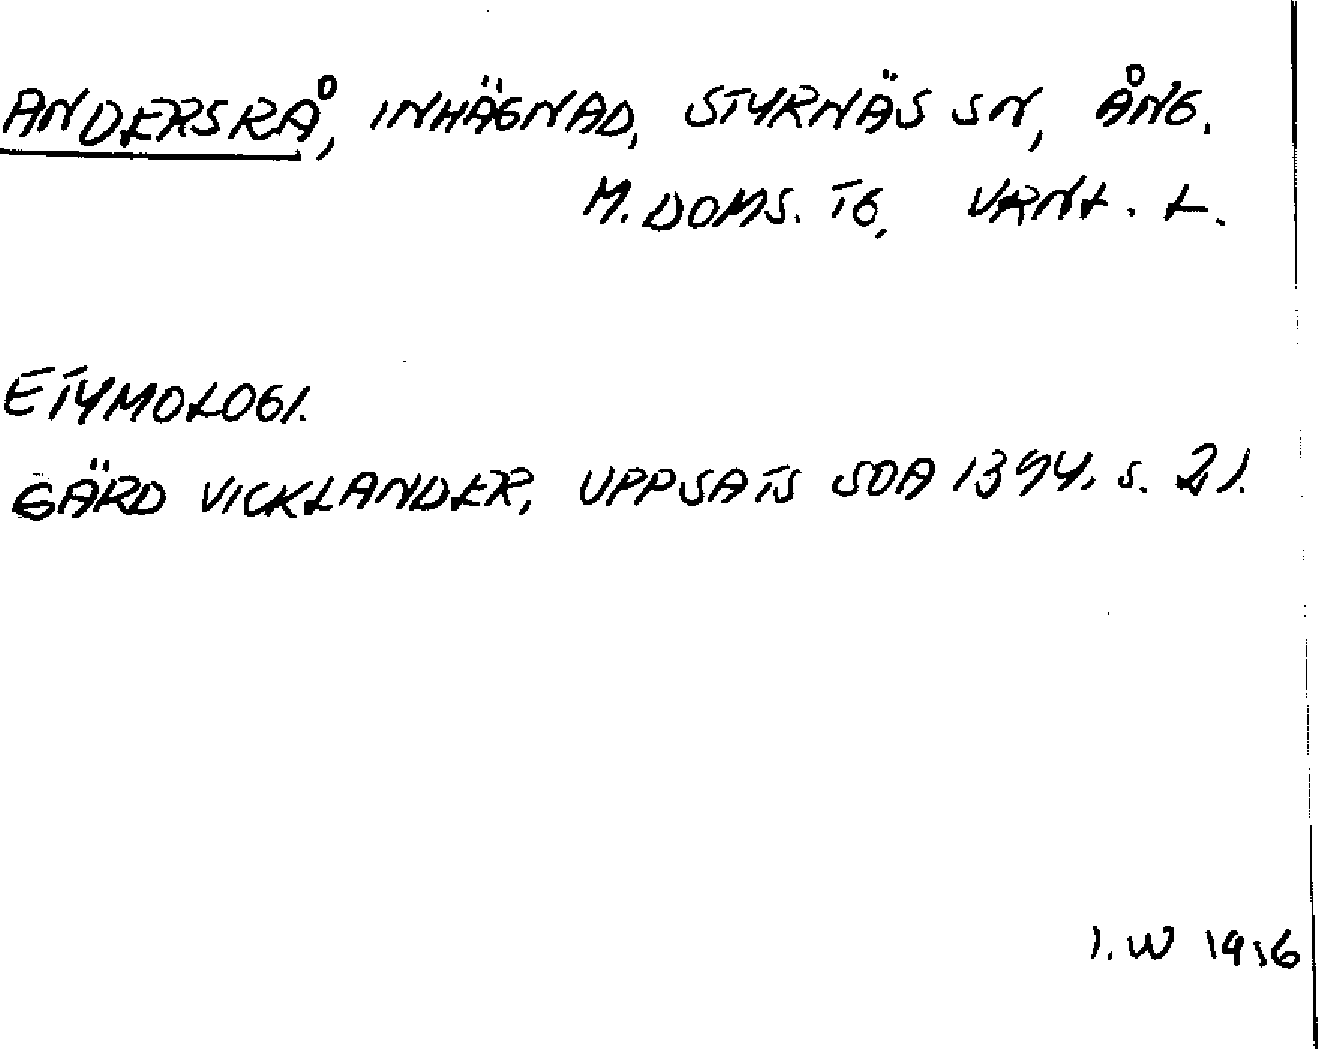 ANDERSRÅ, INHÄGNAD, STYRNÄS SN, ÅNG.
M. DOMS. TG,
ETYMOLOGI.
GÄRD VICKLANDER, UPPSATS SOA 1394. S. 21.
I. W 1916